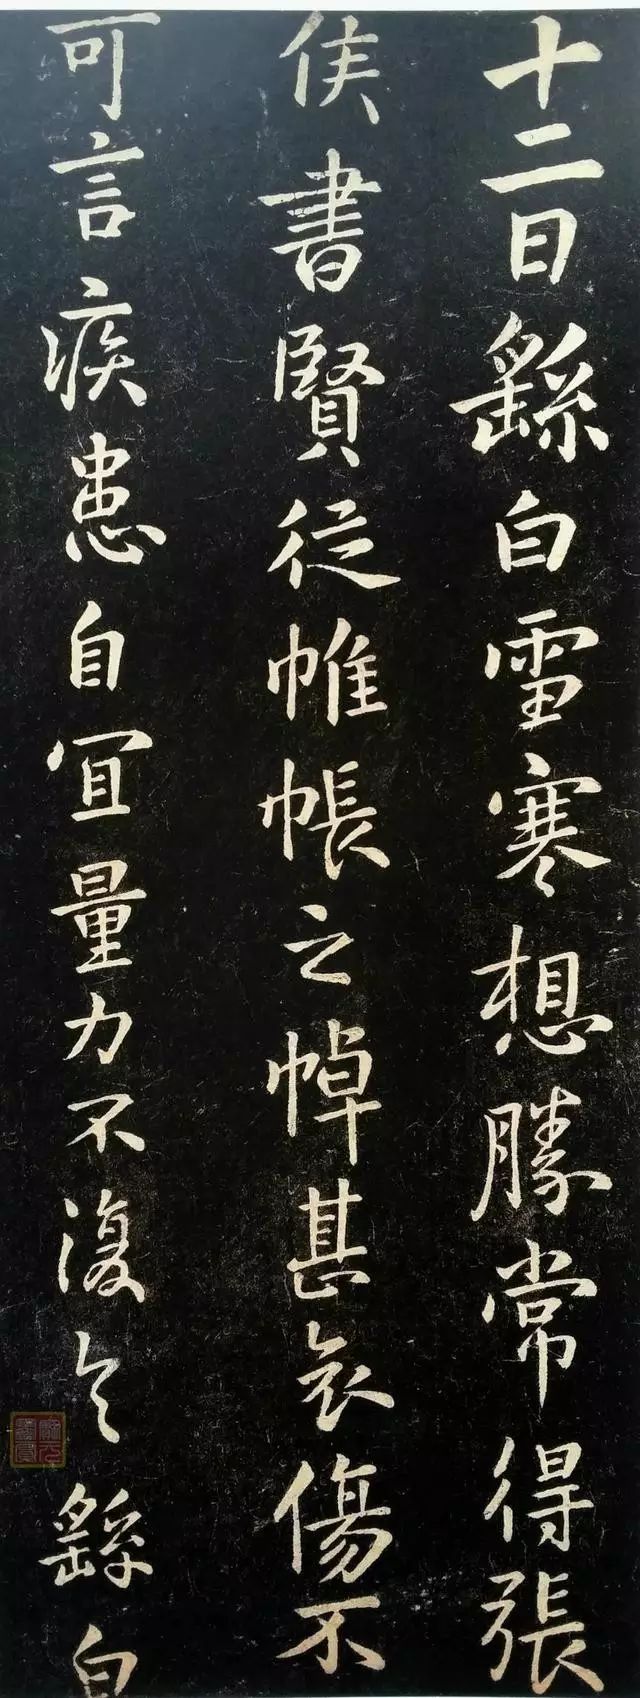 十二日繇白雪寒想勝常得張
侯書賢從帷帳之悼甚哀傷不
可言疾患自冝量力不復具繇白